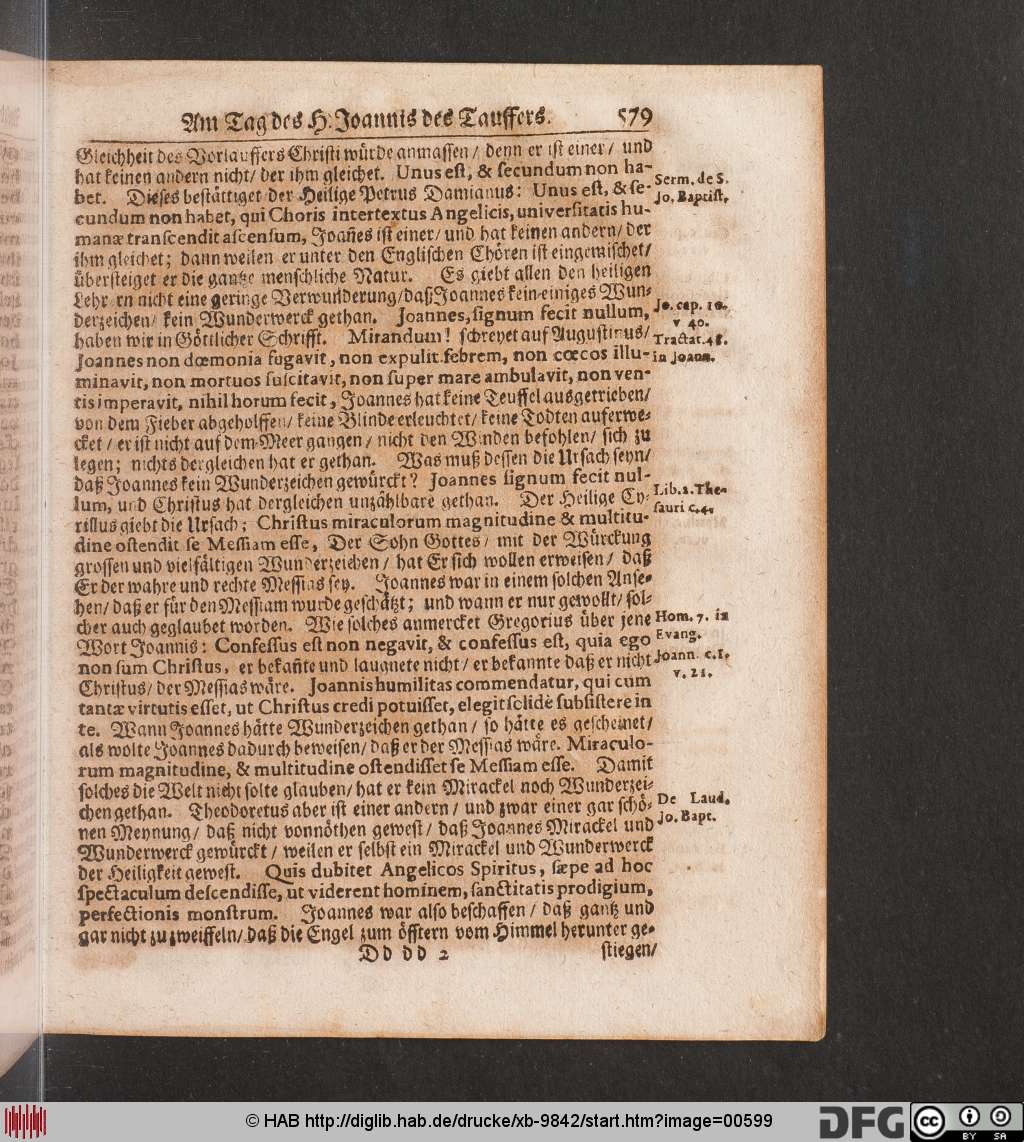 Am Tag des H. Joannis des Tauffers. 579
Gleichheit des Vorlauffers Christi würde anmassen / denn er ist einer / und
hat keinen andern nicht / der ihm gleichet. Unus est, & secundum non ha-
bet. Dieses bestättiget der Heilige Petrus Damianus: Unus est, & se-
cundum non habet, qui Choris intertextus Angelicis, universitatis hu-
manæ transcendit ascensum, Joañes ist einer / und hat keinen andern / der
ihm gleichet; dann weilen er unter den Englischen Chören ist eingemischet /
übersteiget er die gantze menschliche Natur. Es giebt allen den heiligen
Lehrern nicht eine geringe Verwunderung / daß Joannes kein einiges Wun-
derzeichen / kein Wunderwerck gethan. Joannes, signum fecit nullum,
haben wir in Göttlicher Schrifft. Mirandum! schreyet auf Augustinus /
Joannes non dœmonia fugavit, non expulit febrem, non cœcos illu-
minavit, non mortuos suscitavit, non super mare ambulavit, non ven-
tis imperavit, nihil horum fecit, Joannes hat keine Teuffel ausgetrieben /
von dem Fieber abgeholffen / keine Blinde erleuchtet / keine Todten auferwe-
cket / er ist nicht auf dem Meer gangen / nicht den Winden befohlen / sich zu
legen; nichts dergleichen hat er gethan. Was muß dessen die Ursach seyn /
daß Joannes kein Wunderzeichen gewürckt? Joannes signum fecit nul-
lum, und Christus hat dergleichen unzählbare gethan. Der Heilige Cy-
rillus giebt die Ursach; Christus miraculorum magnitudine & multitu-
dine ostendit se Messiam esse, Der Sohn Gottes / mit der Würckung
grossen und vielfältigen Wunderzeichen / hat Er sich wollen erweisen / daß
Er der wahre und rechte Messias sey. Joannes war in einem solchen Anse-
hen / daß er für den Messiam wurde geschätzt; und wann er nur gewollt / sol-
cher auch geglaubet worden. Wie solches anmercket Gregorius über jene
Wort Joannis: Confessus est non negavit, & confessus est, quia ego
non sum Christus, er bekañte und laugnete nicht / er bekannte daß er nicht
Christus / der Messias wäre. Joannis humilitas commendatur, qui cum
tantæ virtutis esset, ut Christus credi potuisset, elegit solidè subsistere in
te. Wann Joannes hätte Wunderzeichen gethan / so hätte es gescheinet /
als wolte Joannes dadurch beweisen / daß er der Messias wäre. Miraculo-
rum magnitudine, & multitudine ostendisset se Messiam esse. Damit
solches die Welt nicht solte glauben / hat er kein Mirackel noch Wunderzei-
chen gethan. Theodoretus aber ist einer andern / und zwar einer gar schö-
nen Meynung / daß nicht vonnöthen gewest / daß Joannes Mirackel und
Wunderwerck gewürckt / weilen er selbst ein Mirackel und Wunderwerck
der Heiligkeit gewest. Quis dubitet Angelicos Spiritus, sæpe ad hoc
spectaculum descendisse, ut viderent hominem, sanctitatis prodigium,
perfectionis monstrum. Joannes war also beschaffen / daß gantz und
gar nicht zu zweiffeln / daß die Engel zum öfftern vom Himmel herunter ge-
Dd dd 2 stiegen /
Serm. de S.
Jo. Baptist.
Jo. cap. 10.
v 40.
Tractat. 48.
in Joann.
Lib. 2. The-
sauri c. 4.
Hom. 7. in
Evang.
Joann. c. 1.
v. 21.
De Laud.
Jo. Bapt.
© HAB http://diglib.hab.de/drucke/xb-9842/start.htm?image=00599
DFG
cc
BY SA